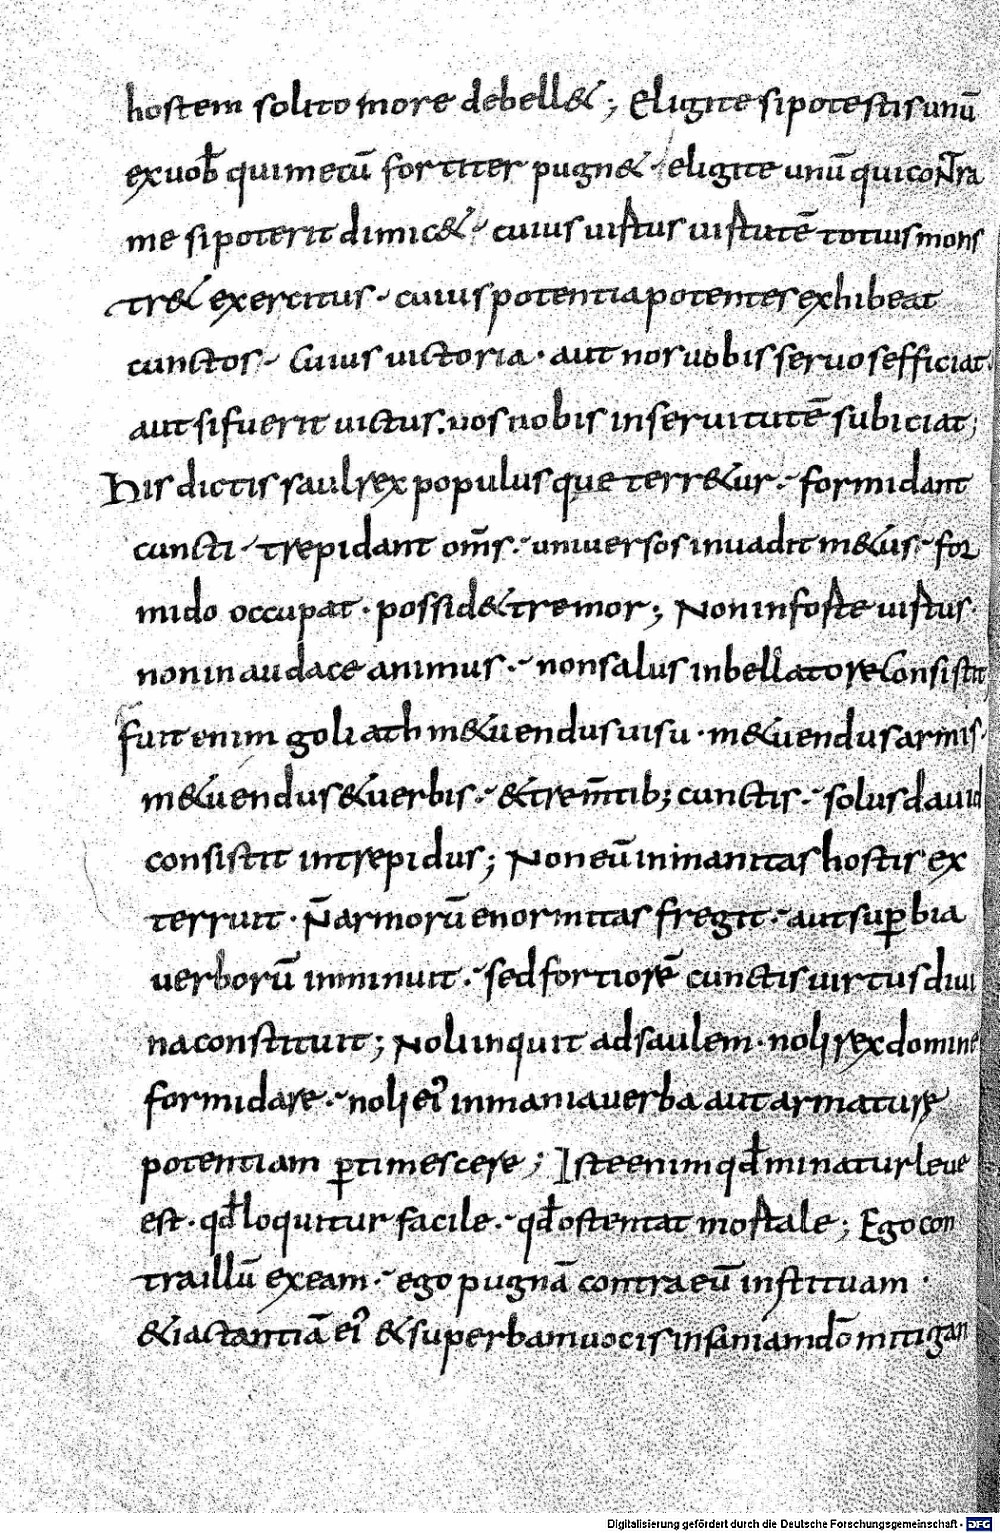 hostem solito more debell&; Eligite si potestis unū
ex uob̄ qui mecū fortiter pugn& · eligite unū qui contra
me si poterit dimic& · cuius uirtus uirtutē totius mons
tr& exercitus · cuius potentia potentes exhibeat
cunctos · Cuius uictoria · aut nos uobis seruos efficiat.
aut si fuerit uictus. uos nobis in seruitutē subiciat;
His dictis saul rex populusque terr&ur · formidant
cuncti · trepidant om̄s · uniuersos inuadit m&us · for
mido occupat · possid& tremor; Non in forte uirtus.
non in audace animus · non salus in bellatore Consistit
fuit enim goliath m&uendus uisu · m&uendus armis ·
m&uendus & uerbis · & trem̄tib; cunctis · solus dauid
consistit intrepidus; Non eū inmanitas hostis ex
terruit · N̄ armorū enormitas fregit · aut sup̱bia
uerborū imminuit · sed fortiorē cunctis uirtus diui
na constituit; Noli inquit ad saulem · noli rex domine
formidare · noli ei' inmania uerba aut armature
potentiam p̱timescere; Iste enim qđ minatur leue
est · qđ loquitur facile · qđ ostentat mortale; Ego con
tra illū exeam · ego pugnā contra eū instituam ·
& iactantiā ei' & superbam uocis insaniam dō mitigan
Digitalisierung gefördert durch die Deutsche Forschungsgemeinschaft - DFG